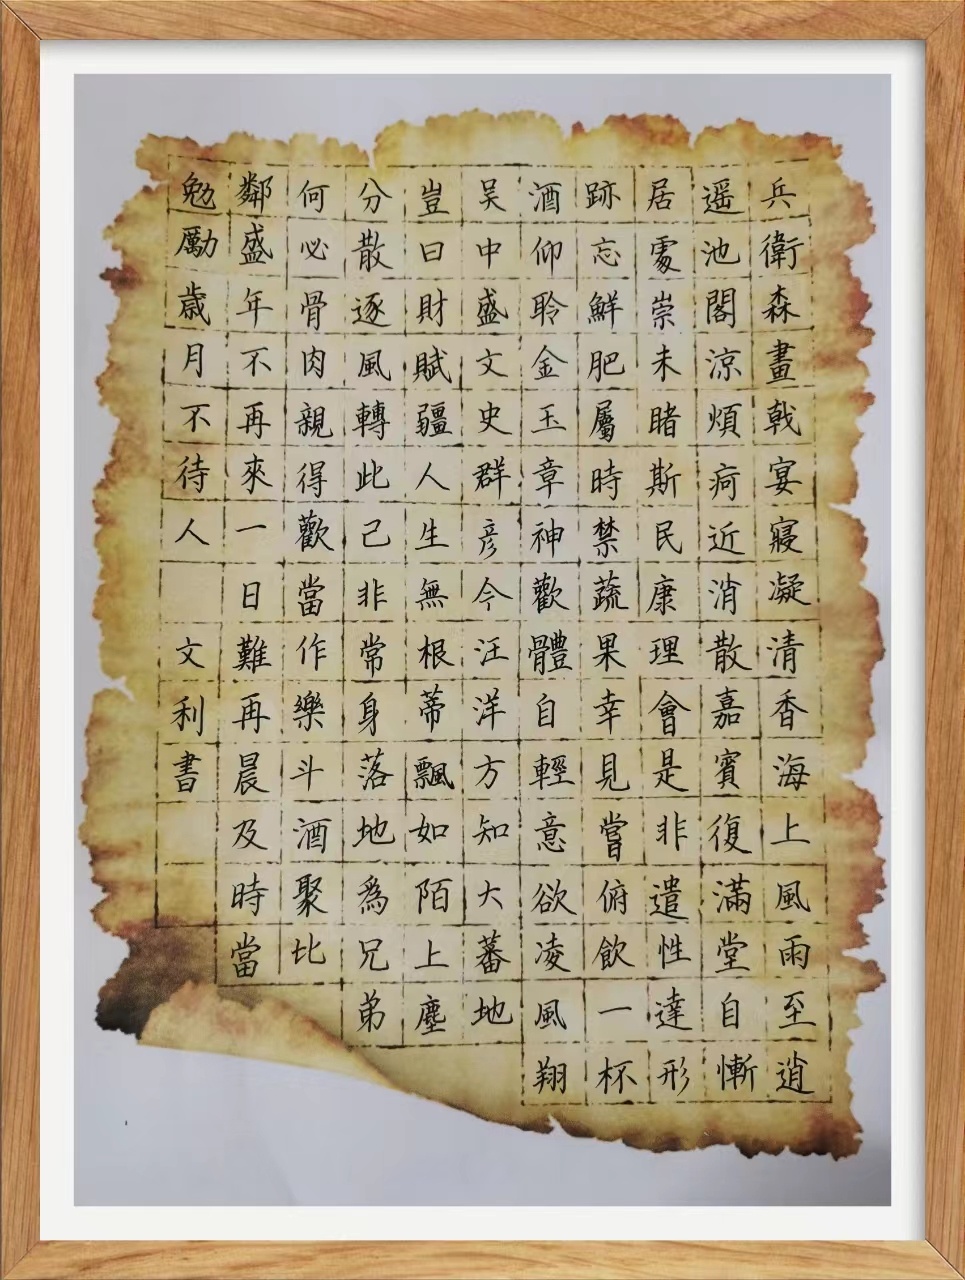 兵衛森畫戟宴寢凝清香海上風雨至逍
遥池閣涼煩疴近消散嘉賓復滿堂自慚
居處崇未睹斯民康理會是非遣性達形
跡忘鮮肥屬時禁蔬果幸見嘗俯飲一杯
酒仰聆金玉章神歡體自輕意欲凌風翔
吴中盛文史群彦今汪洋方知大蕃地
豈曰財賦疆人生無根蒂飄如陌上塵
分散逐風轉此己非常身落地為兄弟
何必骨肉親得歡當作樂斗酒聚比
鄰盛年不再來一日難再晨及時當
勉勵歲月不待人
文利書